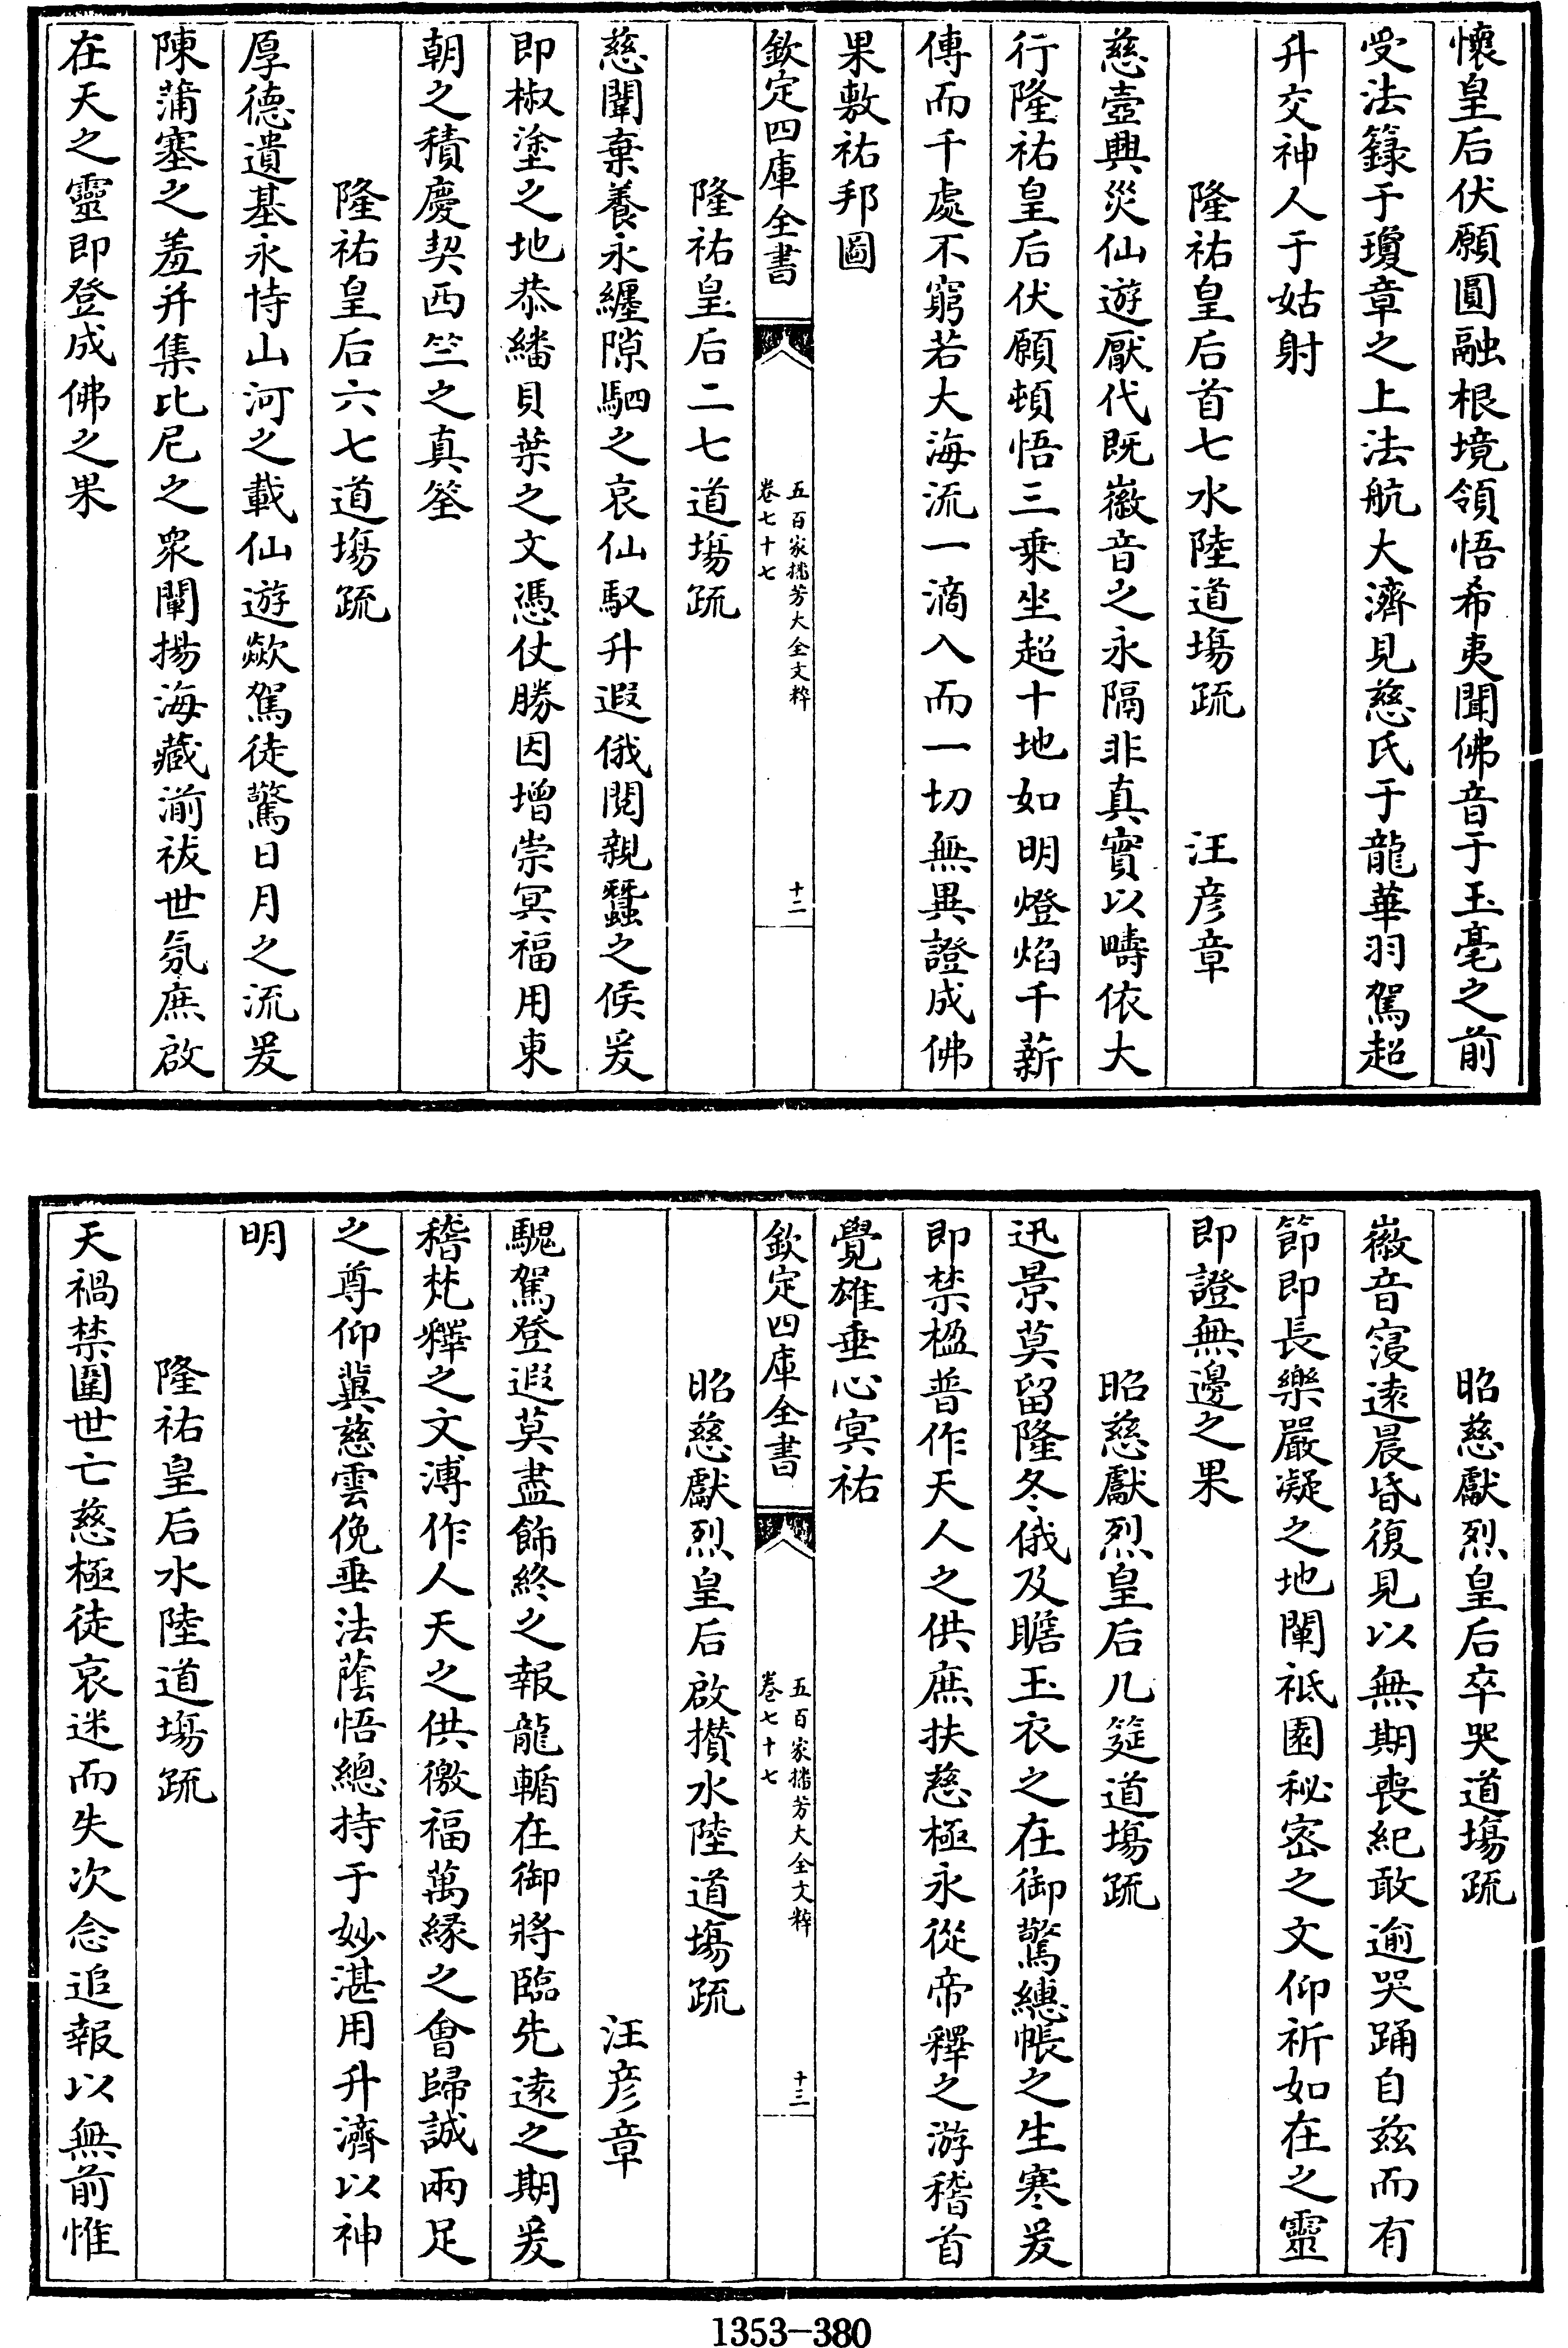 懷皇后伏願圓融根境領悟希夷聞佛音于玉毫之前
受法籙于瓊章之上法航大濟見慈氏于龍華羽駕超
升交神人于姑射
隆祐皇后首七水陸道塲疏 汪彦章
慈壼興災仙遊厭代既徽音之永隔非真實以疇依大
行隆祐皇后伏願頓悟三乗坐超十地如明燈焰千薪
傳而千處不窮若大海流一滴入而一切無異證成佛
果敷祐邦圖
欽定四庫全書
五百家播芳大全文粹
卷七十七
十二
隆祐皇后二七道塲疏
慈闈棄養永纏隙駟之哀仙馭升遐俄閱親蠶之候爰
即椒塗之地恭繙貝葉之文憑仗勝因增崇冥福用東
朝之積慶契西竺之真筌
隆祐皇后六七道塲疏
厚德遺基永恃山河之載仙遊歘駕徒驚日月之流爰
陳蒲塞之羞并集比尼之衆闡揚海藏湔祓世氛庶啟
在天之靈即登成佛之果
昭慈獻烈皇后卒哭道塲疏
徽音寖逺晨昏復見以無期喪紀敢逾哭踊自兹而有
節即長樂嚴凝之地闡祇園秘宻之文仰祈如在之靈
即證無邊之果
昭慈獻烈皇后几筵道塲疏
迅景莫留隆冬俄及瞻玉衣之在御驚繐帳之生寒爰
即禁楹普作天人之供庶扶慈極永從帝釋之游稽首
覺雄垂心冥祐
欽定四庫全書
五百家播芳大全文粹
卷七十七
十三
昭慈獻烈皇后啟攅水陸道塲疏
汪彦章
騩駕登遐莫盡飾終之報龍輴在御將臨先逺之期爰
稽梵釋之文溥作人天之供徼福萬縁之會歸誠兩足
之尊仰冀慈雲俛垂法蔭悟總持于妙湛用升濟以神
明
隆祐皇后水陸道塲疏
天禍禁闈世亡慈極徒哀迷而失次念追報以無前惟
1353-380